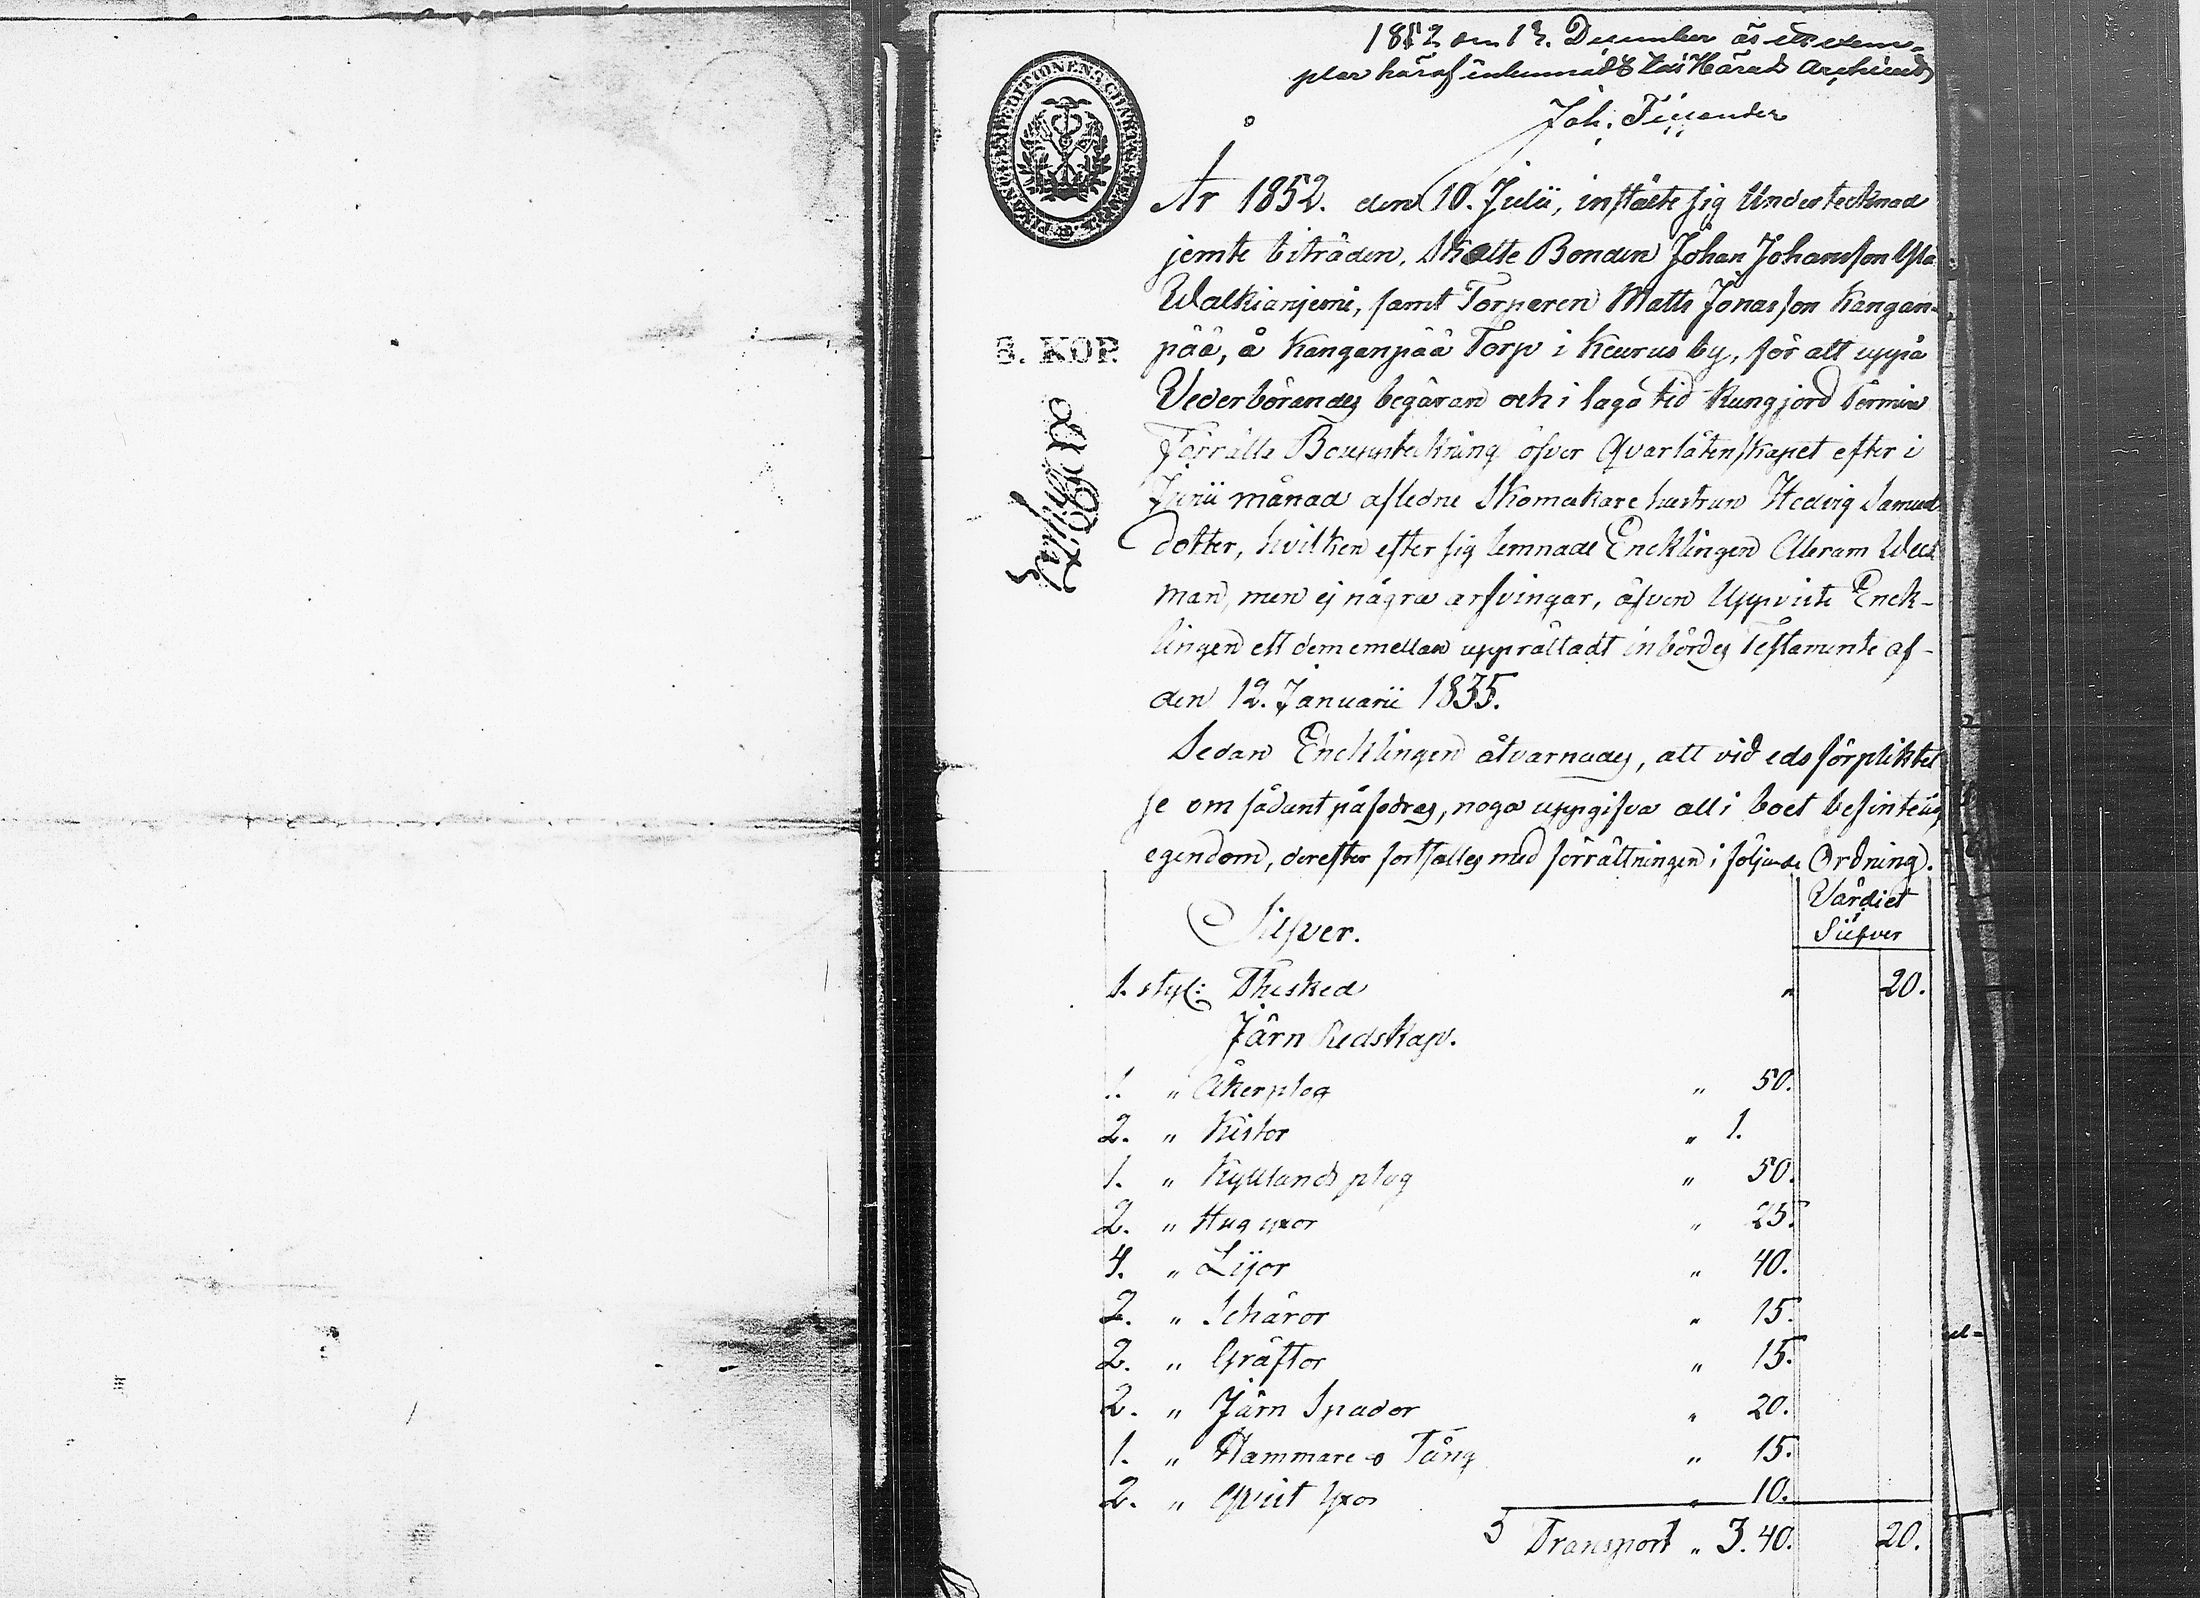 1852 den 13. December är ett exem-
plar häraf inlemnadt till Härads Archivet
Joh. Tissander
År 1852. den 10. Julii, instälte sig Undertecknad
jemte biträden, Skatte Bonden Johan Johansson
Walkianjemi, samt Torparen Matts Jonasson Kangan-
pää, å Kanganpää Torp i Keurus by, för att uppå
8. KOP.
Vederbörandes begäran och i laga tid Kungjord Termin
Förrätta Bouppteckning öfver Qvarlåtenskapet efter i
Junii månad aflidne Skomakare hustrun Hedvig Samuels
dotter, hvilken efter sig lemnade Encklingen Abram
man, men ej några arfvingar, äfven Uppviste Enck-
lingen ett dem emellan upprättadt inbördes Testamente af
den 12. Januarii 1835.
Sedan Encklingen åtvarnades, att vid edsförpliktel
se om sådant påfodras, noga uppgifva all i boet befintelig
egendom, derefter fortsattes med förrättningen i följande Ordning.
Värdiet
i
Silfver
Silfver.
1. styc: Thesked " 20.
Järn Redskap.
1. " Åkerplog " 50.
2. " Kistor " 1.
1. " Kyttlands plog " 50.
2. " Hug yxor " 25.
4. " Lijor " 40.
2. " Schäror " 15.
2. " Gräftor " 15.
2. " Järn Spador " 20.
1. " Hammare o Tång " 15.
2. " Qvist yxor " 10.
Transport " 3.40. 20.